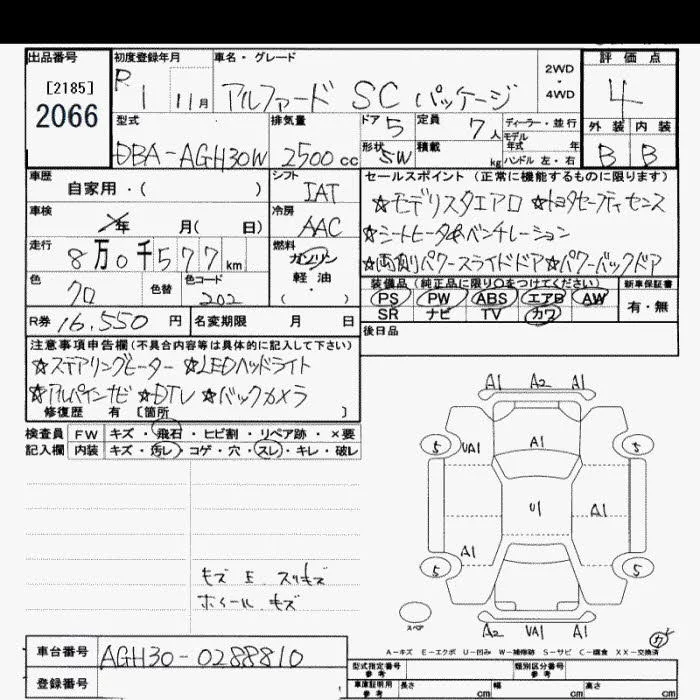 出品番号
[2185]
2066
初度登録年月
R 1 11月
車名・グレード
アルファード SC パッケージ
2WD
・
4WD
評価点
4
外装 内装
B B
型式
DBA-AGH30W
排気量
2500cc
ドア 5
形状 SW
定員 7人
積載 kg
ディーラー・並行
モデル
年式 年
ハンドル 左・右
車歴
自家用・( )
シフト
IAT
車検
年 月( 日)
冷房
AAC
走行
8万0千577km
燃料
ガソリン
軽・油
( )
色
クロ
色替
色コード
202
R券 16.550 円
名変期限 月 日
セールスポイント (正常に機能するものに限ります)
☆モデリスタエアロ ☆トヨタセーフティセンス
☆シートヒータ&ベンチレーション
☆両側パワースライドドア☆パワーバックドア
装備品(純正品に限り〇をつけてください)
PS PW ABS エアB AW
SR ナビ TV カワ
新車保証書
有・無
後日品
注意事項申告欄(不具合内容等は具体的に記入して下さい)
☆ステアリングヒーター ☆LEDヘッドライト
☆アルパインナビ ☆DTV ☆バックカメラ
修復歴 有 〔箇所 〕
検査員 FW キズ・飛石・ヒビ割・リペア跡・×要
記入欄 内装 キズ・汚レ・コゲ・穴・スレ・キレ・破レ
A1 A2 A1
5 VA1 A1 5
U1 A1
A1
5 5
スペア
A2 VA1 A1
キズ E スリキズ
ホイール キズ
A-キズ E-エクボ U-凹み W-補修跡 S-サビ C-腐食 XX-交換済
車台番号 AGH30-0288810
登録番号
型式指定番号
参考
類別区分番号
参考
車庫証明用
参考
長さ cm
幅 cm
高さ cm